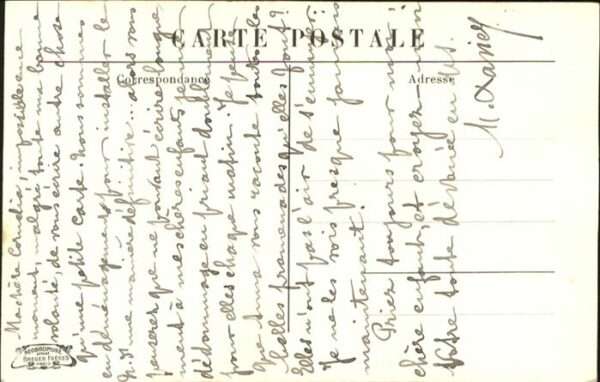 CARTE POSTALE
Correspondance
Adresse
Ma chère Cornélia, impossible en ce
moment, malgré toute ma bonne
volonté, de vous écrire autre chose
qu'une petite carte. Nous sommes
en déménagement pour installer le
d'une manière définitive... alors vous
penserez que ne pouvant écrire longue
ment à mes chères enfants, je me
dédommage en priant doublement
pour elles chaque matin. Je pense
que Anna vous raconte toutes les
belles promenades qu'elles font?
Elles n'ont pas l'air de s'ennuyer!
Je ne les vois presque jamais
maintenant.
Priez toujours pour moi,
chère enfant, et croyez-moi
Votre toute dévouée en
M.
BREGER FRÈRES
PARIS